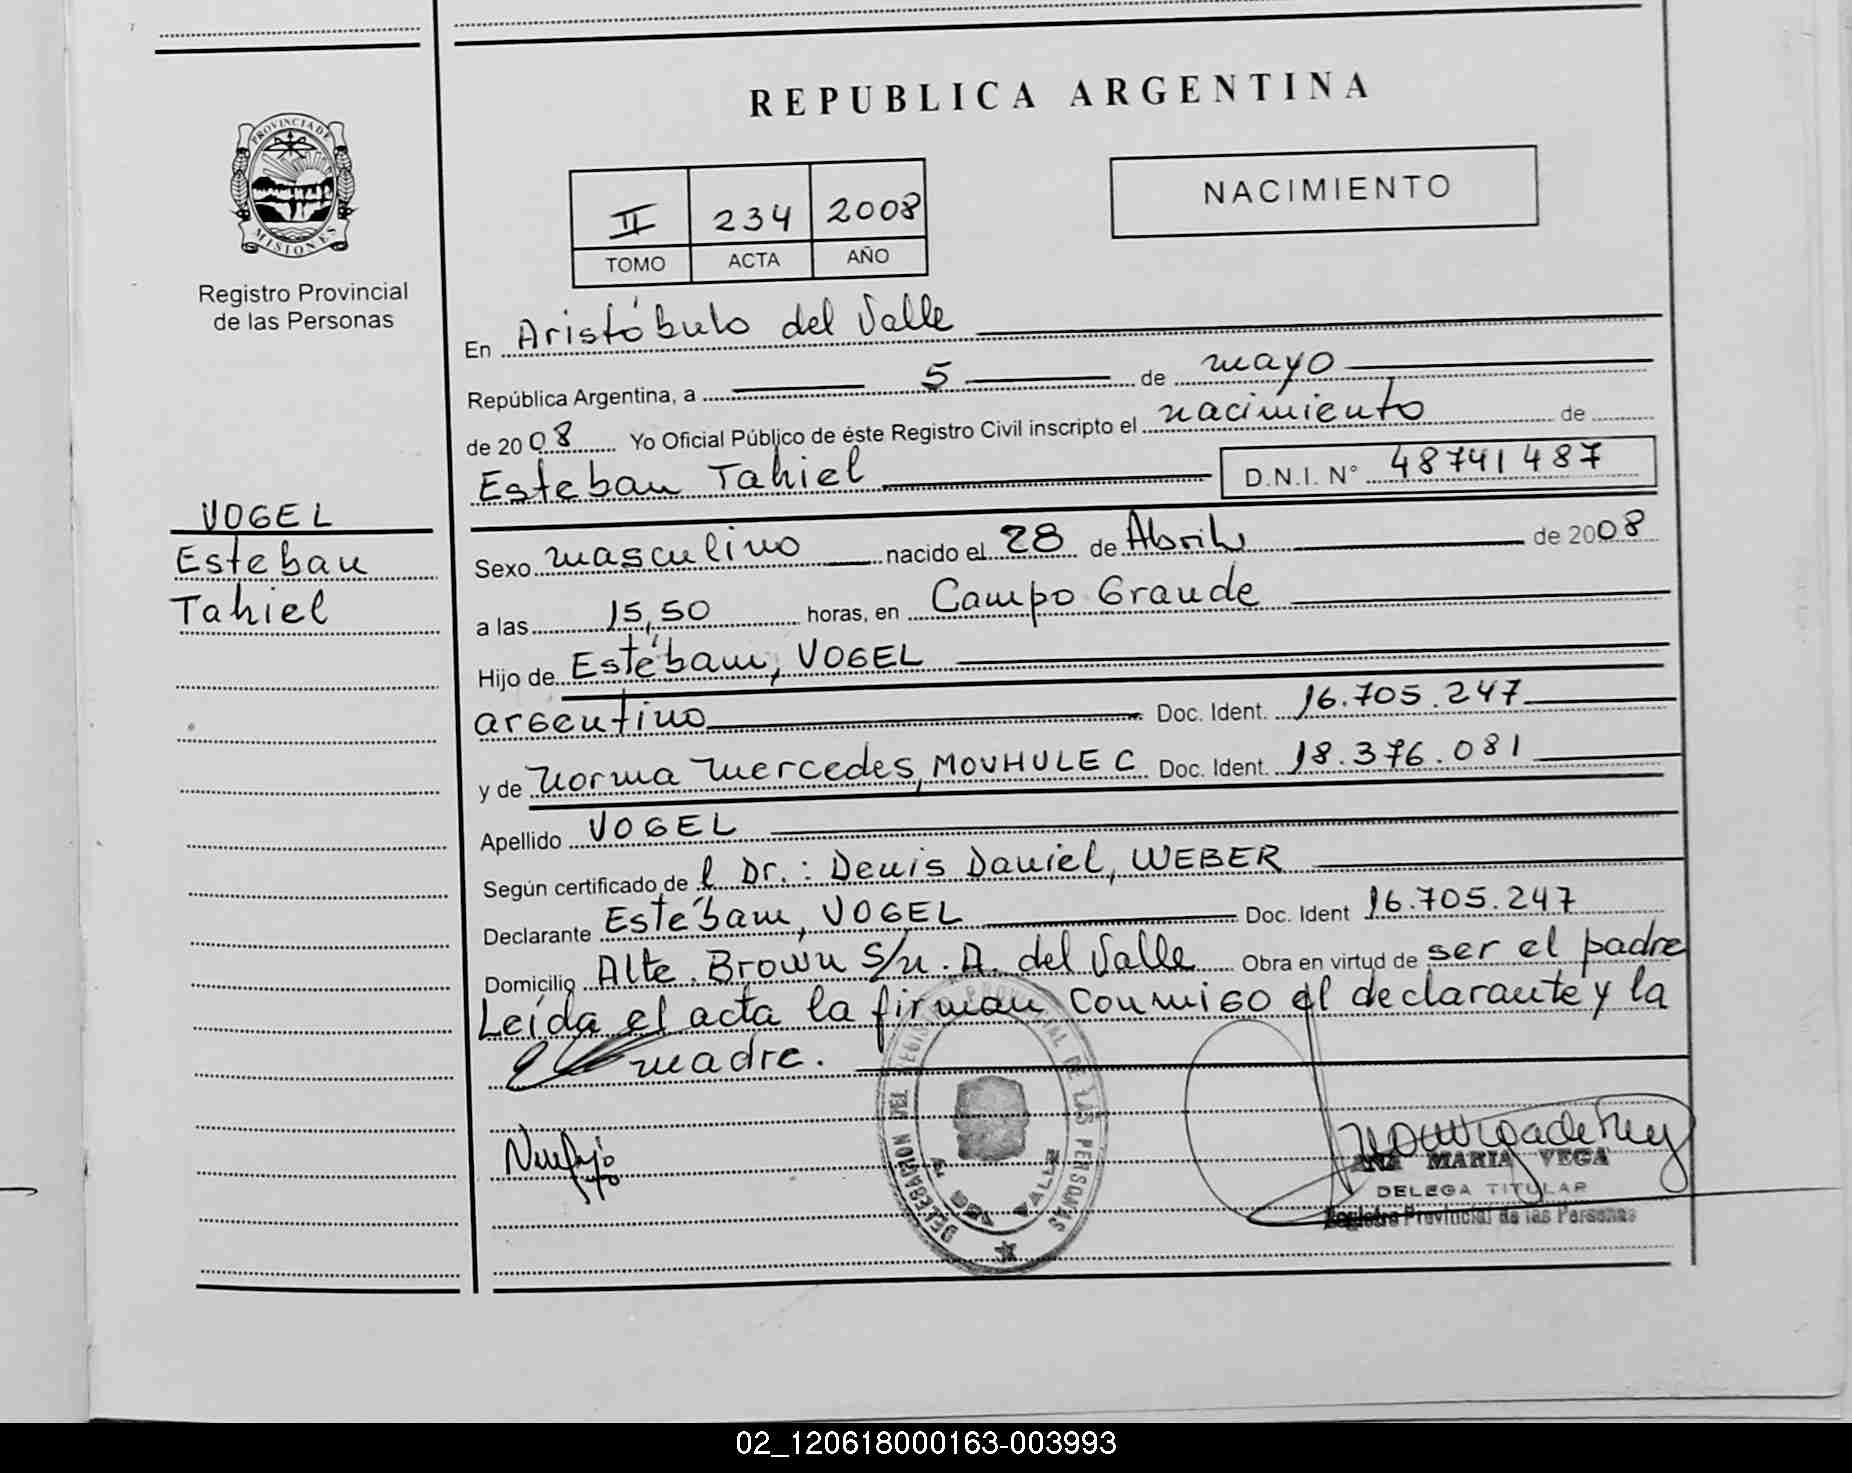 REPUBLICA ARGENTINA
PROVINCIA DE MISIONES
Registro Provincial
de las Personas
II 234 2008
TOMO ACTA AÑO
NACIMIENTO
En Aristóbulo del Valle
República Argentina, a 5 de mayo
de 2008 Yo Oficial Público de éste Registro Civil inscripto el nacimiento de
Esteban Tahiel D.N.I. N° 48741487
VOGEL
Esteban
Tahiel
Sexo masculino nacido el 28 de Abril de 2008
a las 15,50 horas, en Campo Grande
Hijo de Estébam, VOGEL
argentino Doc. Ident. 16.705.247
y de Norma Mercedes, MOVHULEC Doc. Ident. 18.376.081
Apellido VOGEL
Según certificado de l Dr.: Denis Daniel, WEBER
Declarante Estébam, VOGEL Doc. Ident 16.705.247
Domicilio Alte. Brown S/n. A. del Valle Obra en virtud de ser el padre
Leída el acta la firman conmigo el declarante y la
madre.
DELEGACION DEL REGISTRO PROVINCIAL DE LAS PERSONAS
A. DEL VALLE
ANA MARIA VEGA
DELEGA TITULAR
Registro Provincial de las Personas
02_120618000163-003993